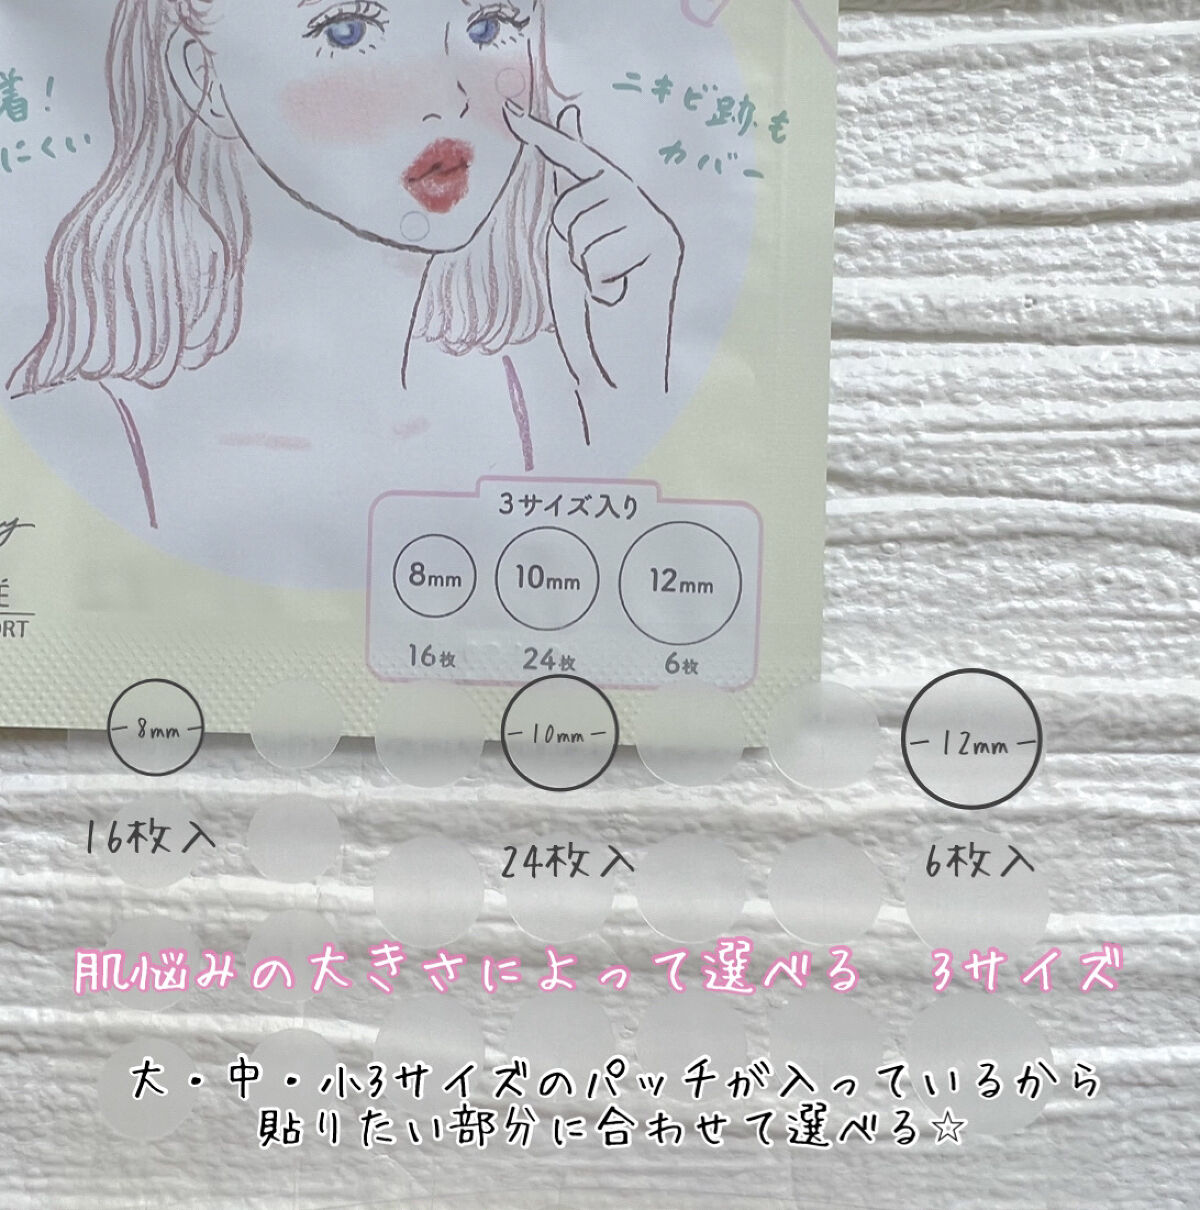 着!
にくい
ニキビ跡も
カバー
3サイズ入り
8mm
10mm
12mm
16枚
24枚
6枚
ORT
8mm
10mm
12mm
16枚入
24枚入
6枚入
肌悩みの大きさによって選べる 3サイズ
大・中・小3サイズのパッチが入っているから
貼りたい部分に合わせて選べる☆